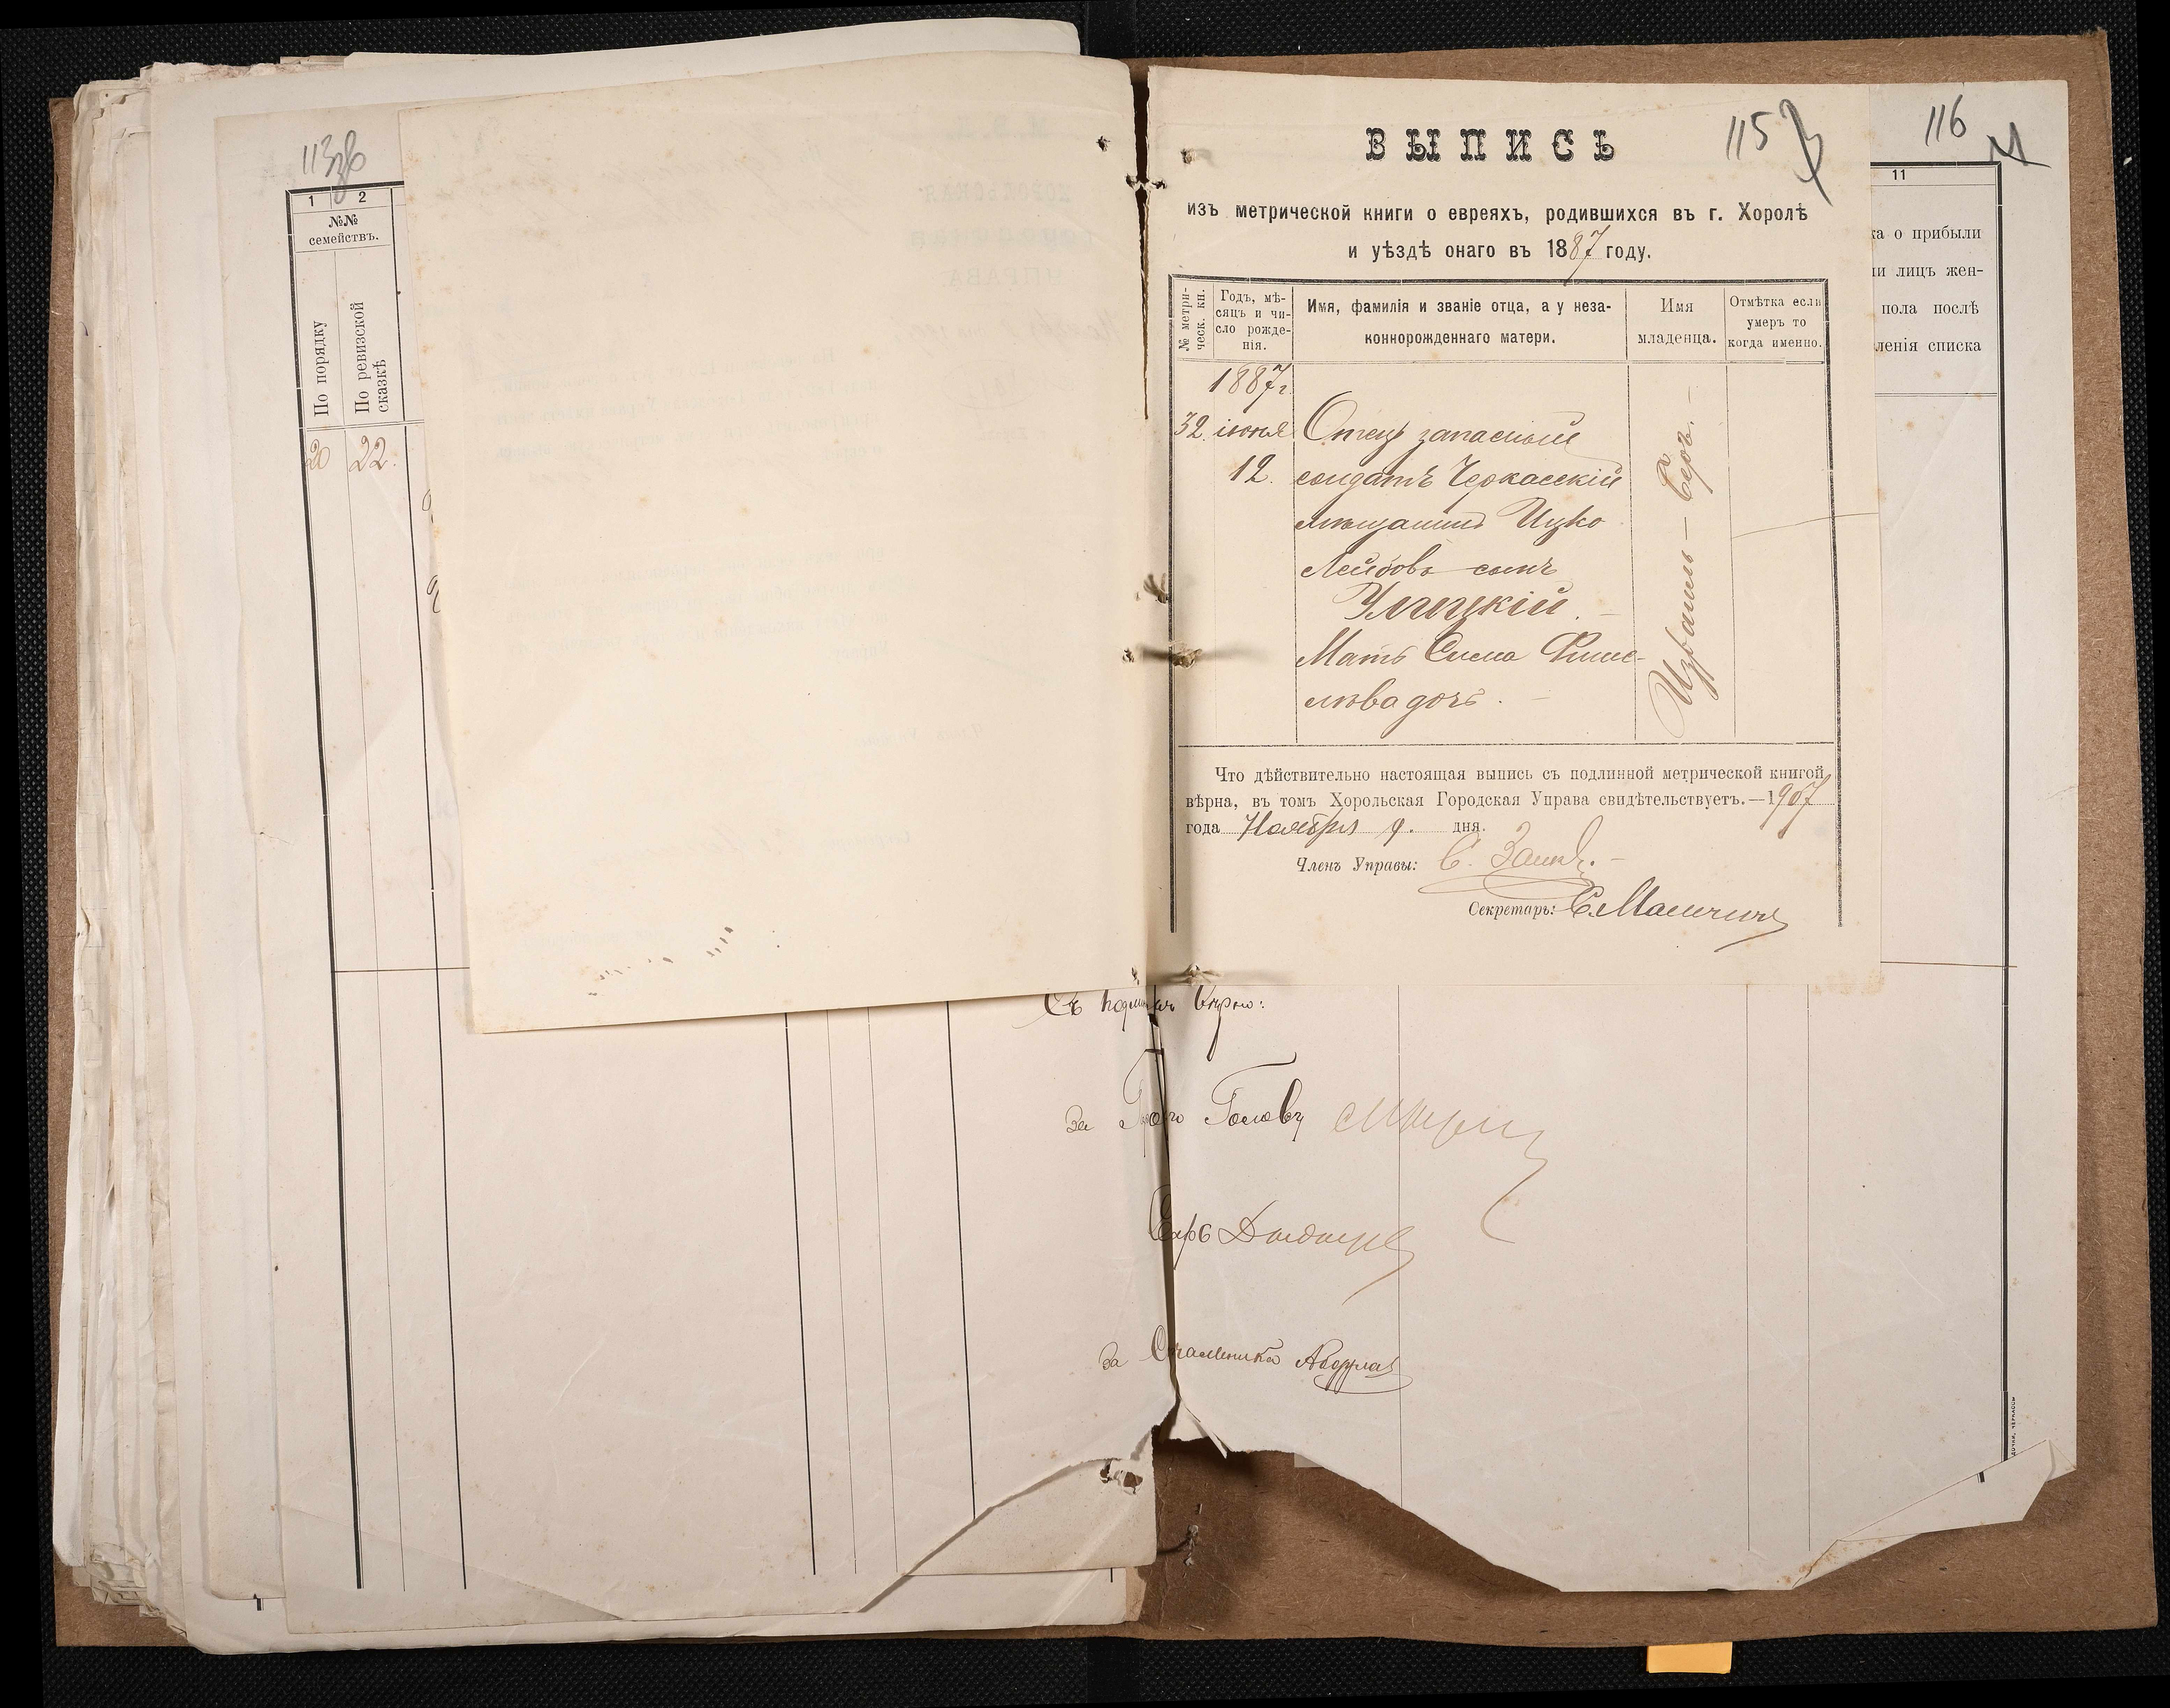 113 об
1 2
№№
семействъ.
По порядку
По ревизской
сказкѣ
20 22.
115
116
ВЫПИСЬ
изъ метрической книги о евреяхъ, родившихся въ г. Хоролѣ
и уѣздѣ онаго въ 1887 году.
№ метри-
ческ. кн.
Годъ, мѣ-
сяцъ и чи-
сло рожде-
нія.
Имя, фамилія и званіе отца, а у неза-
коннорожденнаго матери.
Имя
младенца.
Отмѣтка если
умеръ то
когда именно.
1887 г.
32. іюня
12.
Отецъ запасный
солдатъ Черкасскій
мѣщанинъ Ицко
Лейбовъ сынъ
Улицкій. —
Мать Сима Фише-
лѣва дочь. —
Израиль — Беръ. —
Что дѣйствительно настоящая выпись съ подлинной метрической книгой
вѣрна, въ томъ Хорольская Городская Управа свидѣтельствуетъ.—1907
года Ноября 9. дня.
Членъ Управы:
Секретарь:
11
ка о прибыли
ли лицъ жен-
пола послѣ
ленія списка
Съ подлин вѣрно:
За Гор Голову
Секр
За